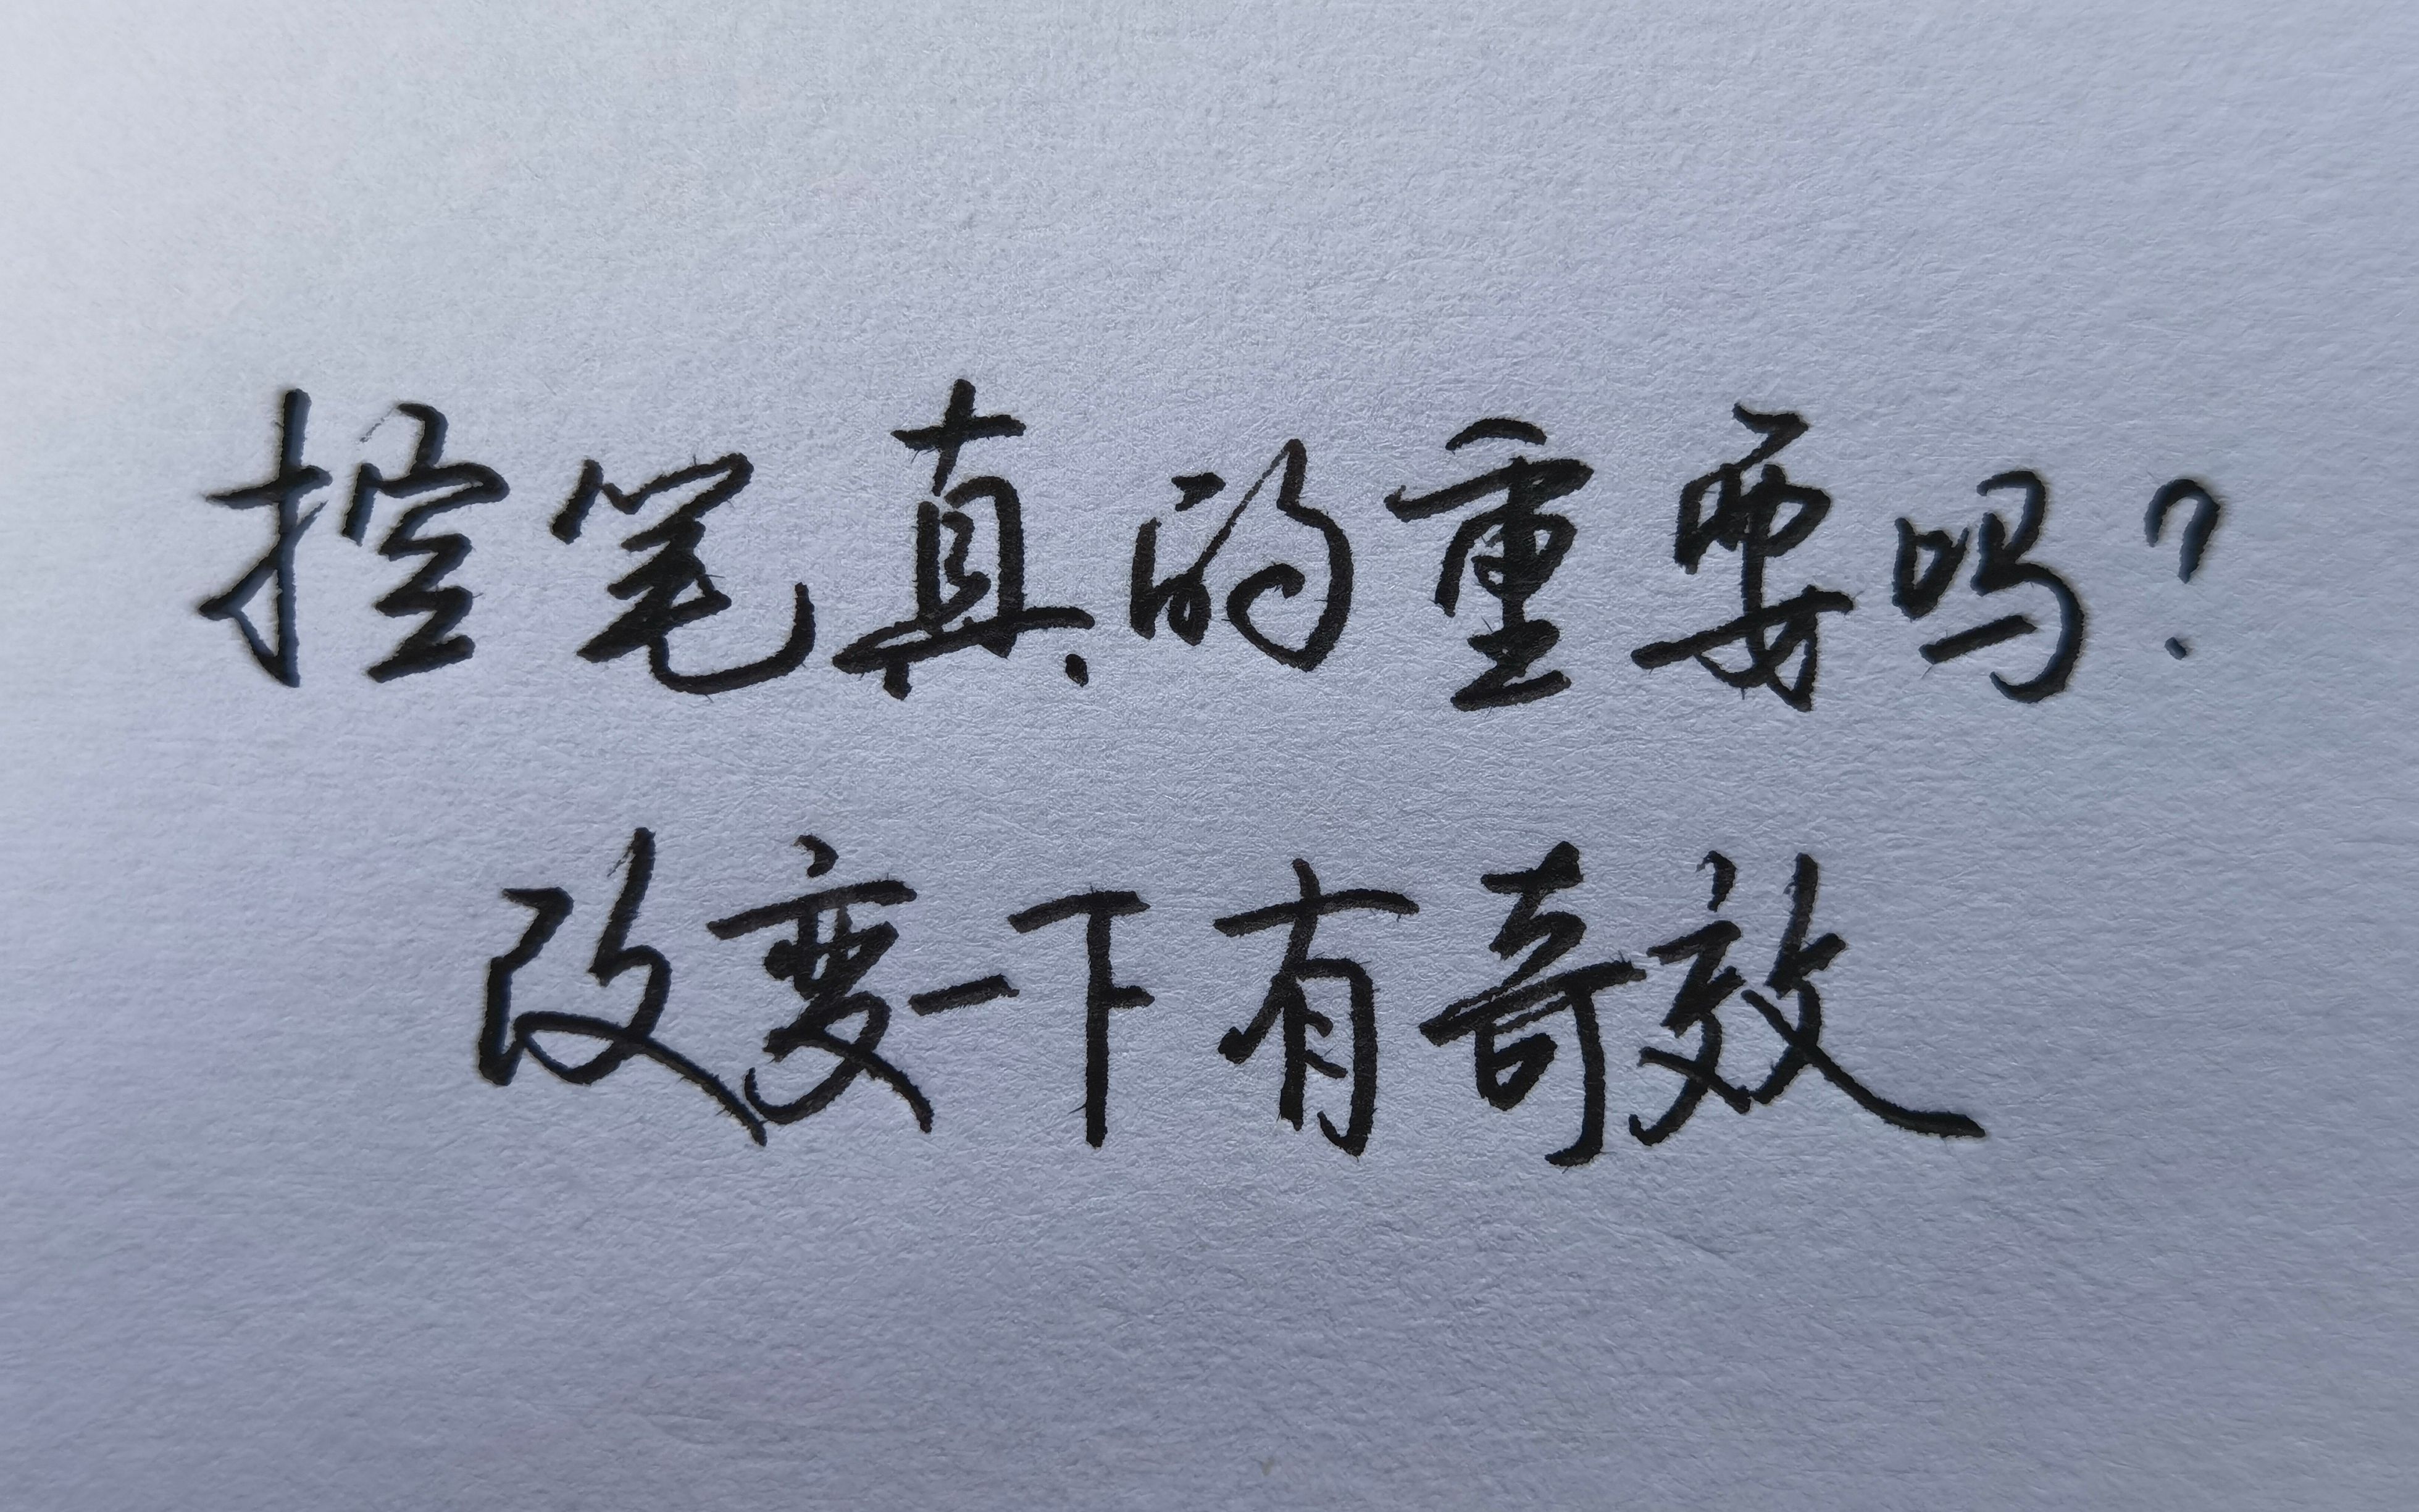 控笔真的重要吗?
改变一下有奇效